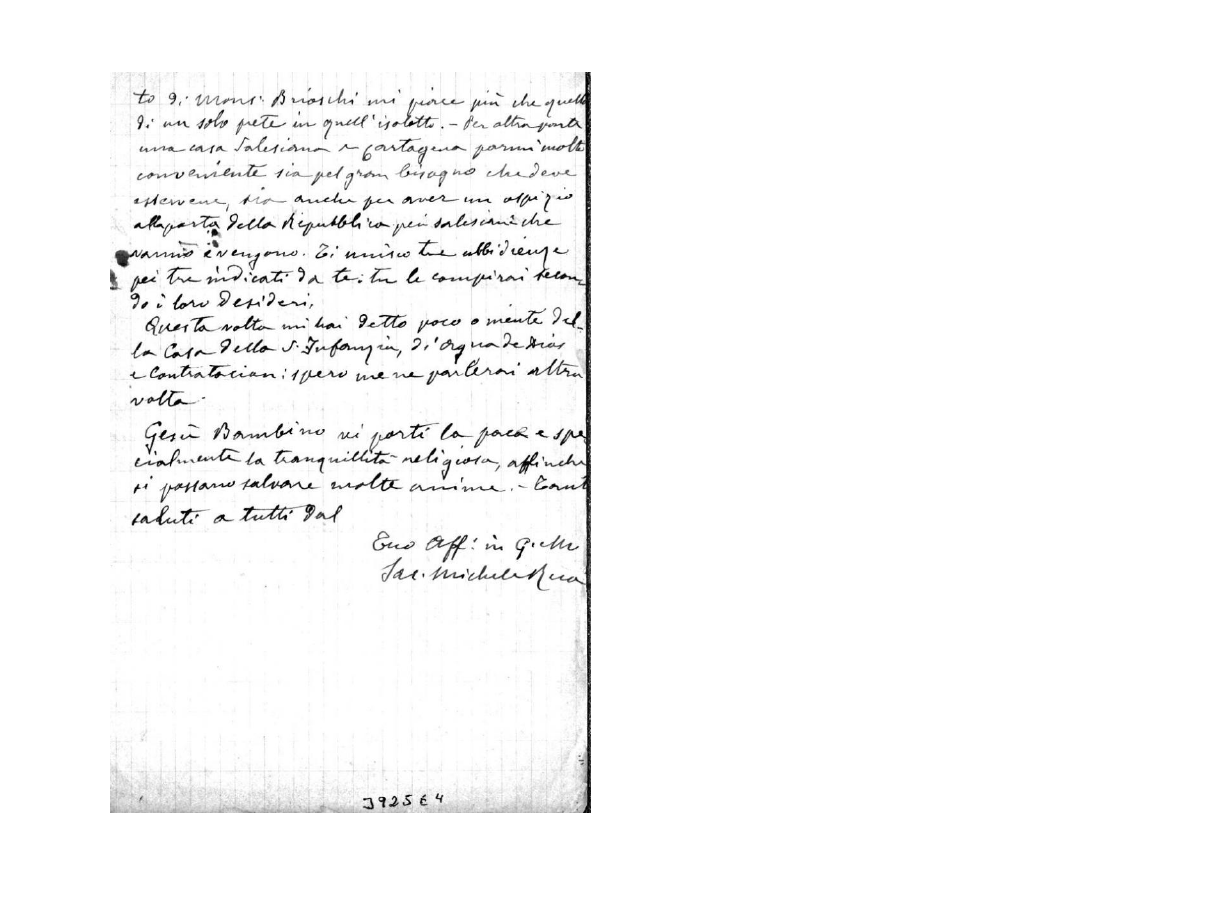 to di Mons. Brioschi mi piace più che quello
di un solo prete in quell'isolotto. - Per altra parte
una casa Salesiana a Cartagena parmi molto
conveniente sia pel gran bisogno che deve
esservene, sia anche per aver un ospizio
alla porta della Repubblica pei salesiani che
vanno e vengono. Ti unisco tre ubbidienze
pei tre indicati da te: tu le compirai secon
do i loro desideri,
Questa volta mi hai detto poco o niente del-
la Casa della S. Infanzia, di Agua de Dios
e Contratacion: spero me ne parlerai altra
volta.
Gesù Bambino vi porti la pace e spe
cialmente la tranquillità religiosa, affinchè
si possano salvare molte anime. - Tanti
saluti a tutti dal
Tuo Aff: in G. e M.
Sac. Michele Rua
J925E4